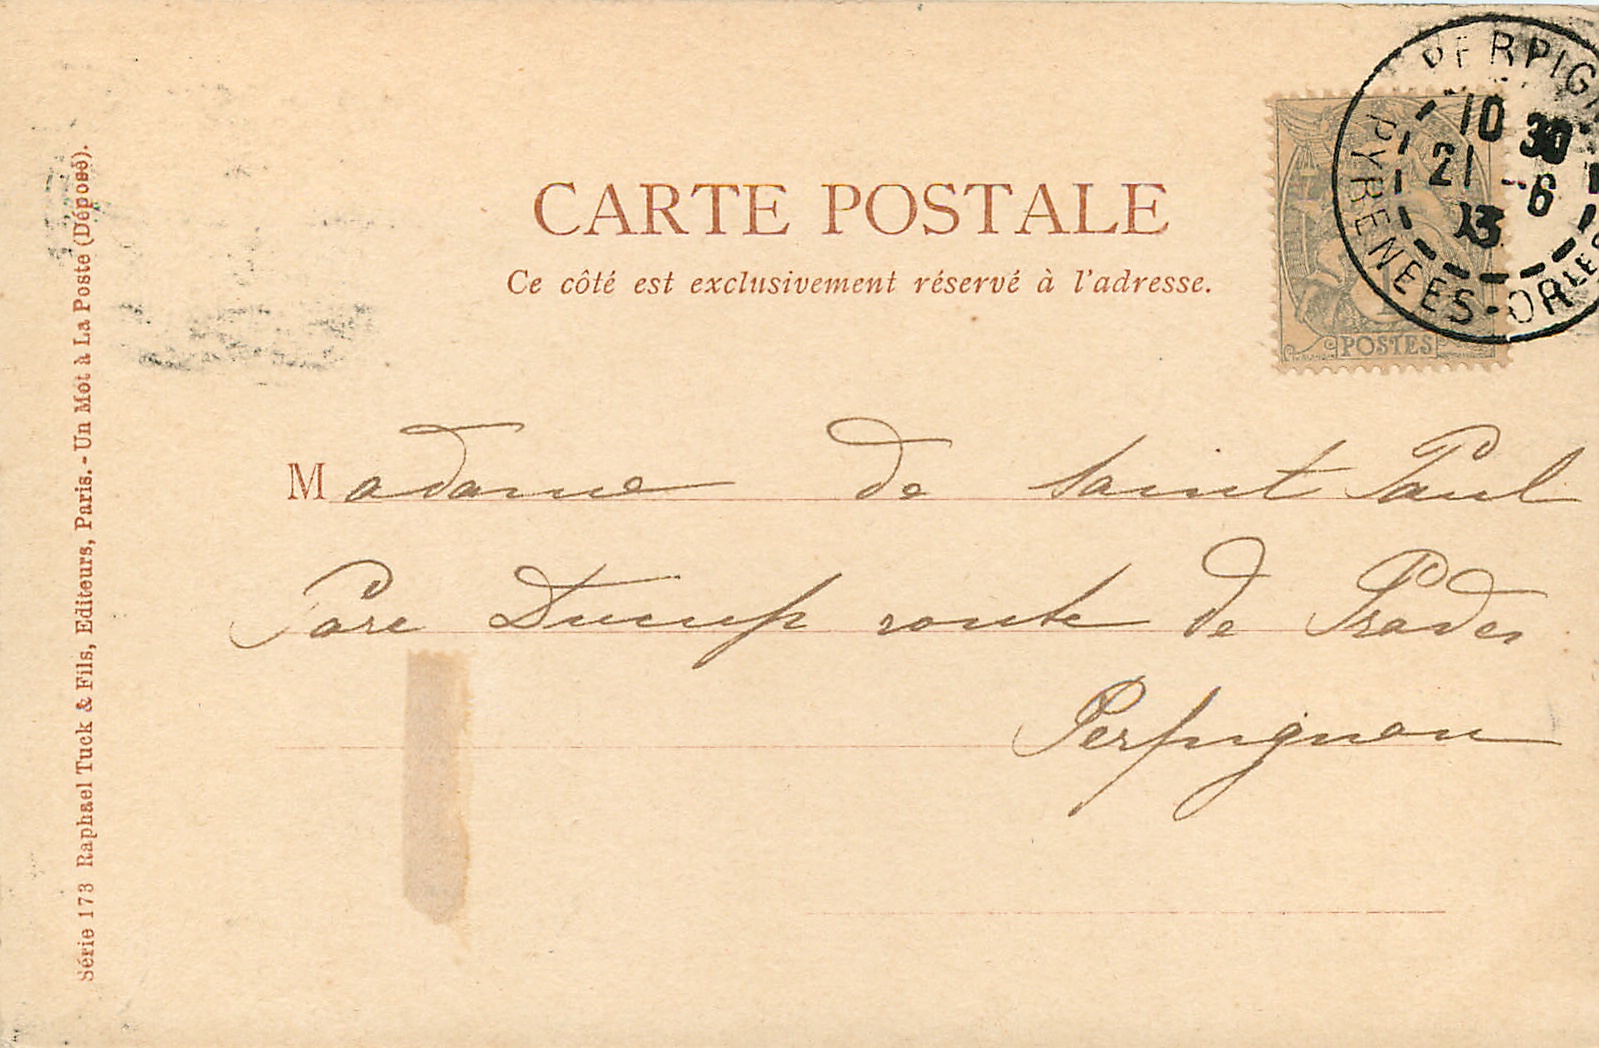 CARTE POSTALE
Ce côté est exclusivement réservé à l'adresse.
Madame de Saint Paul
Parc Ducup route de Prades
Perpignan
Série 173 Raphael Tuck & Fils, Editeurs, Paris. - Un Mot à La Poste (Déposé).
PERPIG
10 30
21 - 6
13
PYRENEES-ORLES
POSTES